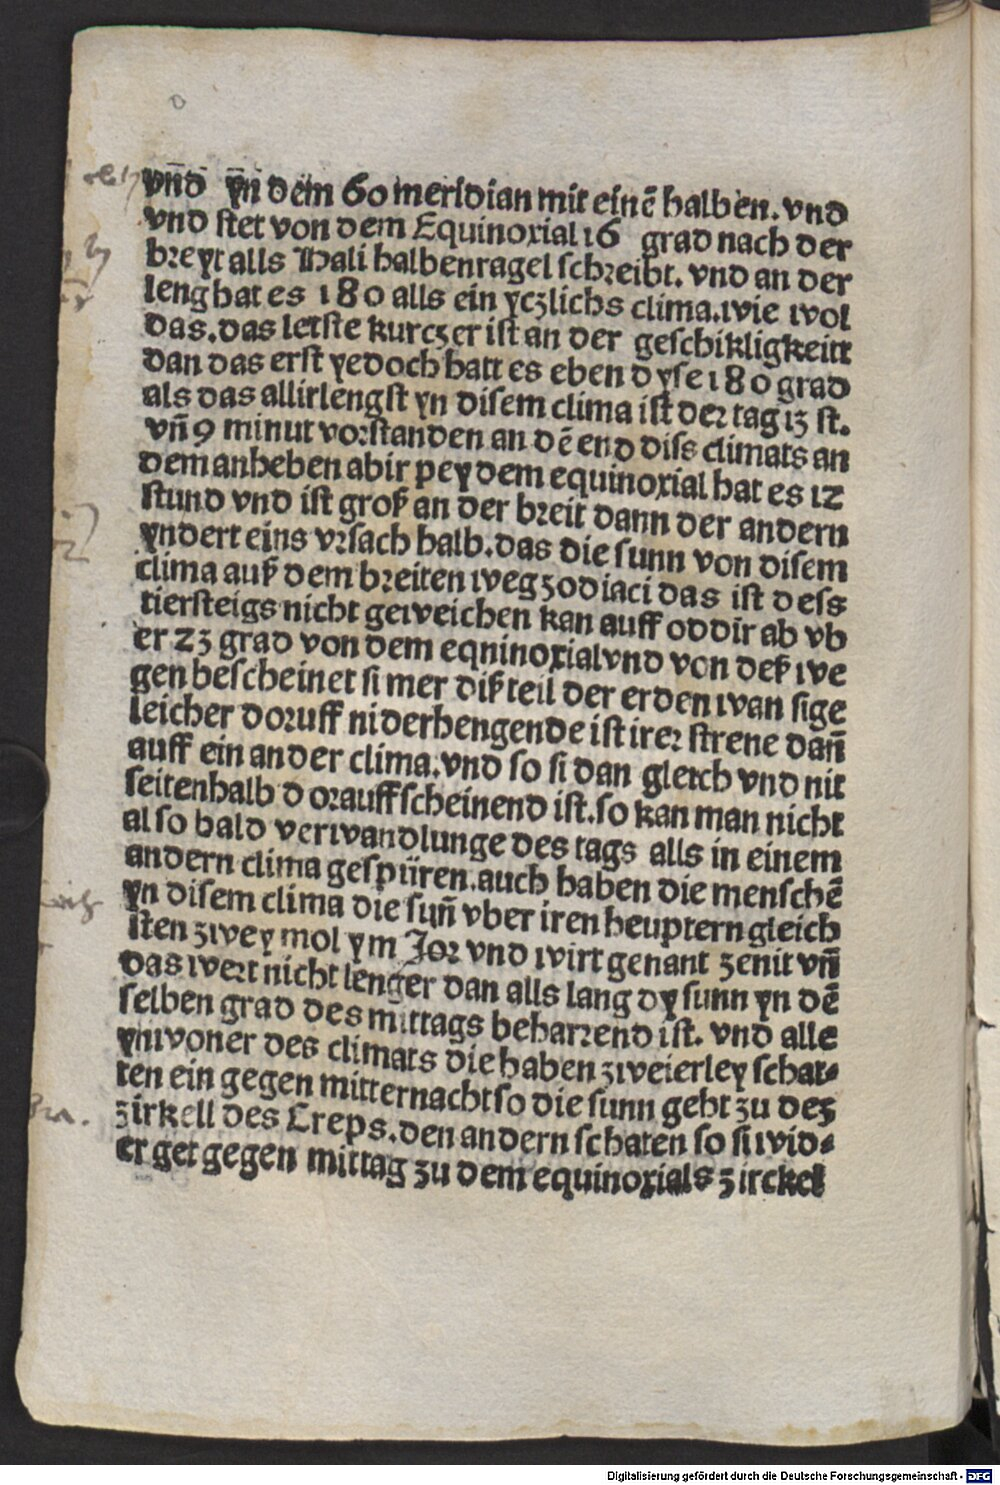 vn̄d ẏn dem 60 meridian mit einē halben. vnd
vnd stet von dem Equinoxial 16 grad nach der
breyt alls Thali halbenragel schreibt. vnd an der
leng hat es 180 alls ein yczlichs clima. wie wol
das. das letste kurczer ist an der geschikligkeitt
dan das erst yedoch hatt es eben dyse 180 grad
als das allirlengst yn disem clima ist der tag 13 st.
vn̄ 9 minut vorstanden an dē end diss climats an
dem anheben abir pey dem equinoxial hat es 12
stund vnd ist groß an der breit dann der andern
yndert eins vrsach halb. das die sunn von disem
clima auß dem breiten weg zodiaci das ist dess
tiersteigs nicht geweichen kan auff oddir ab vb
er 23 grad von dem eqninoxial vnd von deß we
gen bescheinet si mer diß teil der erden wan si ge
leicher doruff niderhengende ist irer strene dan̄
auff ein ander clima. vnd so si dan gleich vnd nit
seitenhalb dorauff scheinend ist. so kan man nicht
also bald verwandlunge des tags alls in einem
andern clima gespüren. auch haben die menschē
yn disem clima die sun̄ vber iren heuptern gleich
sten zwey mol ym Jor vnd wirt genant zenit vn̄
das wert nicht lenger dan alls lang dy sunn yn dē
selben grad des mittags beharrend ist. vnd alle
ynwoner des climats die haben zweierley schat⸗
ten ein gegen mitternacht so die sunn geht zu dez
zirkell des Creps. den andern schaten so si wid⸗
er get gegen mittag zu dem equinoxials zirckel
Digitalisierung gefördert durch die Deutsche Forschungsgemeinschaft - DFG